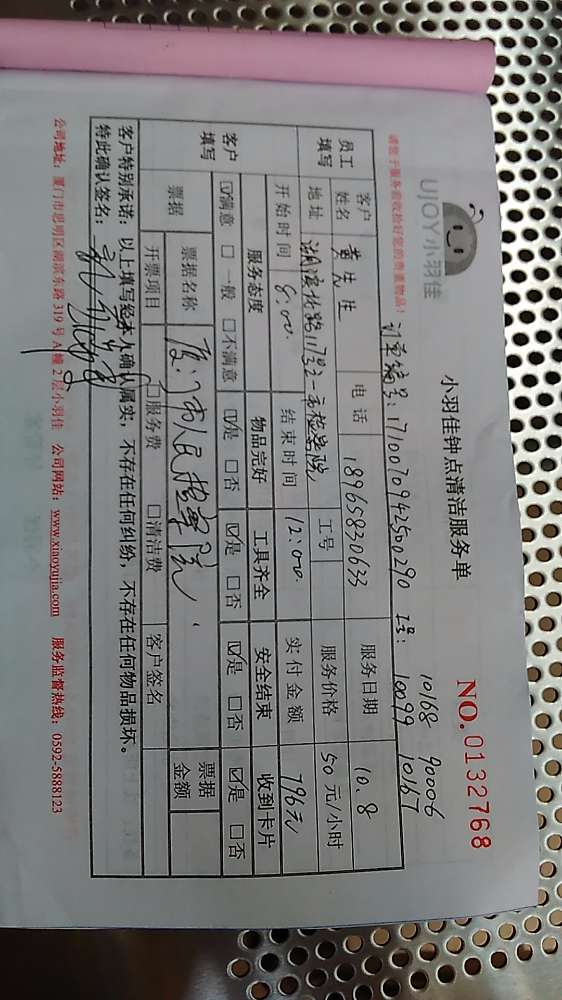 UJOY小羽佳
小羽佳钟点清洁服务单
NO.0132768
请您于服务前收捡好您的贵重物品!
订单编号:1710070942500290 工号: 10168 90006
10099 10167
员工填写 客户姓名 黄先生 电话 18965830633 服务日期 10.8
地址 湖滨北路11号之一市检察院 工号 服务价格 50元/小时
开始时间 8:00 结束时间 12:00 实付金额 796元
客户填写 服务态度 物品完好 工具齐全 安全结束 收到卡片
☑满意 □一般 □不满意 ☑是 □否 ☑是 □否 ☑是 □否 ☑是 □否
票据 票据名称 厦门市人民检察院 票据金额
开票项目 □服务费 □清洁费 客户签名
客户特别承诺:以上填写经本人确认属实,不存在任何纠纷,不存在任何物品损坏。
特此确认签名:
公司地址:厦门市思明区湖滨东路319号A幢2层小羽佳 公司网站:www.xiaoyujia.com 服务监督热线:0592-5888123